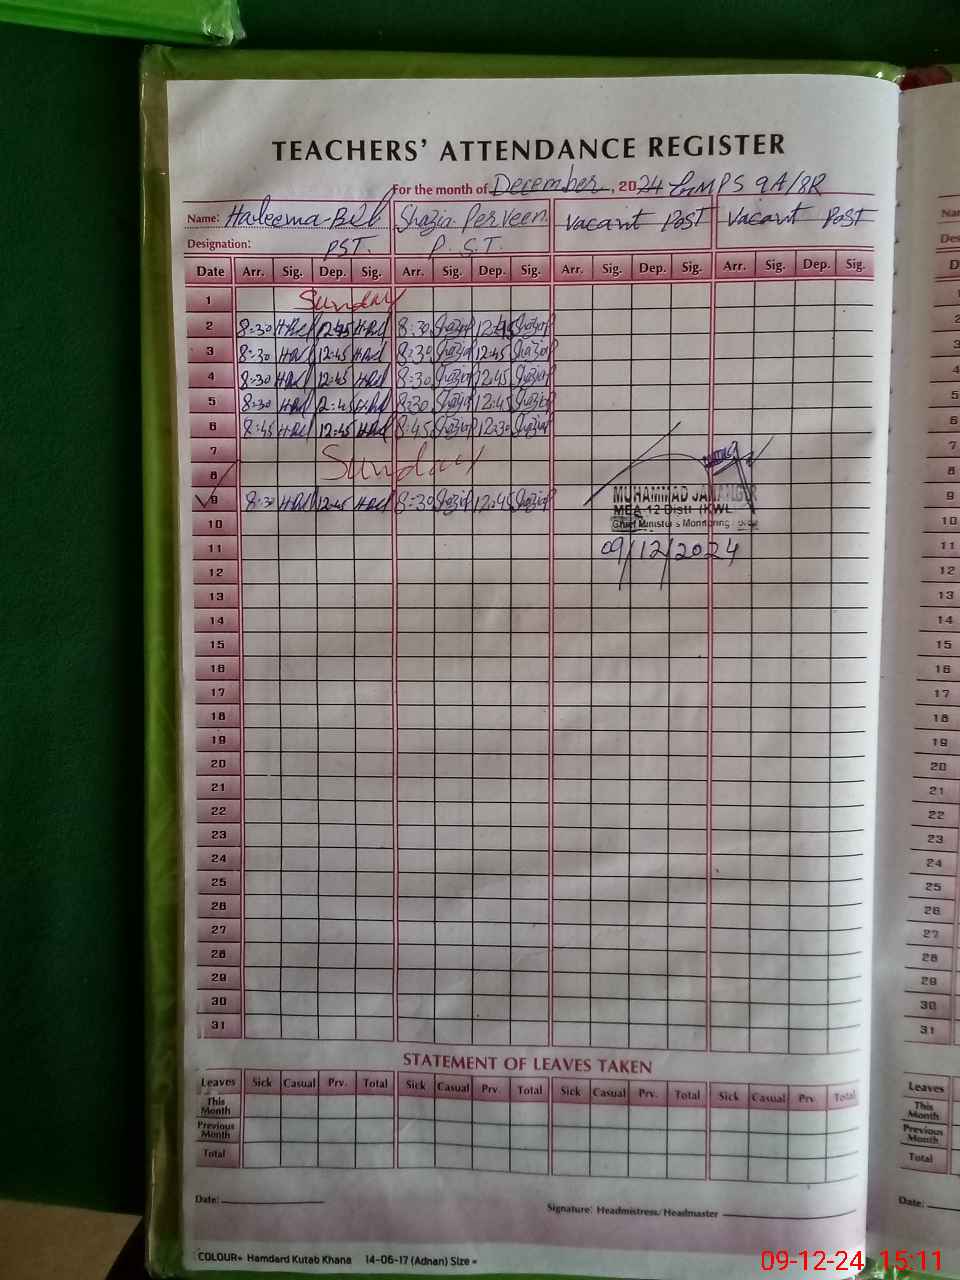 TEACHERS' ATTENDANCE REGISTER
For the month of December, 2024 GMPS 9A/8R
Name: Haleema Bibi Shazia Perveen Vacant Post Vacant Post
Designation: PST. P.S.T.
Date Arr. Sig. Dep. Sig. Arr. Sig. Dep. Sig. Arr. Sig. Dep. Sig. Arr. Sig. Dep. Sig.
1 Sunday
2 8:30 12:45 8:30 Shazia 12:45 Shazia
3 8:30 12:45 8:30 Shazia 12:45 Shazia
4 8:30 12:45 8:30 Shazia 12:45 Shazia
5 8:30 12:45 8:30 Shazia 12:45 Shazia
6 8:45 12:45 8:45 Shazia 12:30 Shazia
7
8 Sunday
9 8:30 12:45 8:30 Shazia 12:45 Shazia
MUHAMMAD JAHANGIR
MEA 12 Distt (KWL
Chief Minister's Monitoring
09/12/2024
10
11
12
13
14
15
16
17
18
19
20
21
22
23
24
25
26
27
28
29
30
31
STATEMENT OF LEAVES TAKEN
Leaves Sick Casual Prv. Total Sick Casual Prv. Total Sick Casual Prv. Total Sick Casual Prv. Total
This Month
Previous Month
Total
Date:
Signature: Headmistress/Headmaster
COLOUR+ Hamdard Kutab Khana 14-06-17 (Adnan) Size =
Leaves
This Month
Previous Month
Total
Date:
09-12-24 15:11